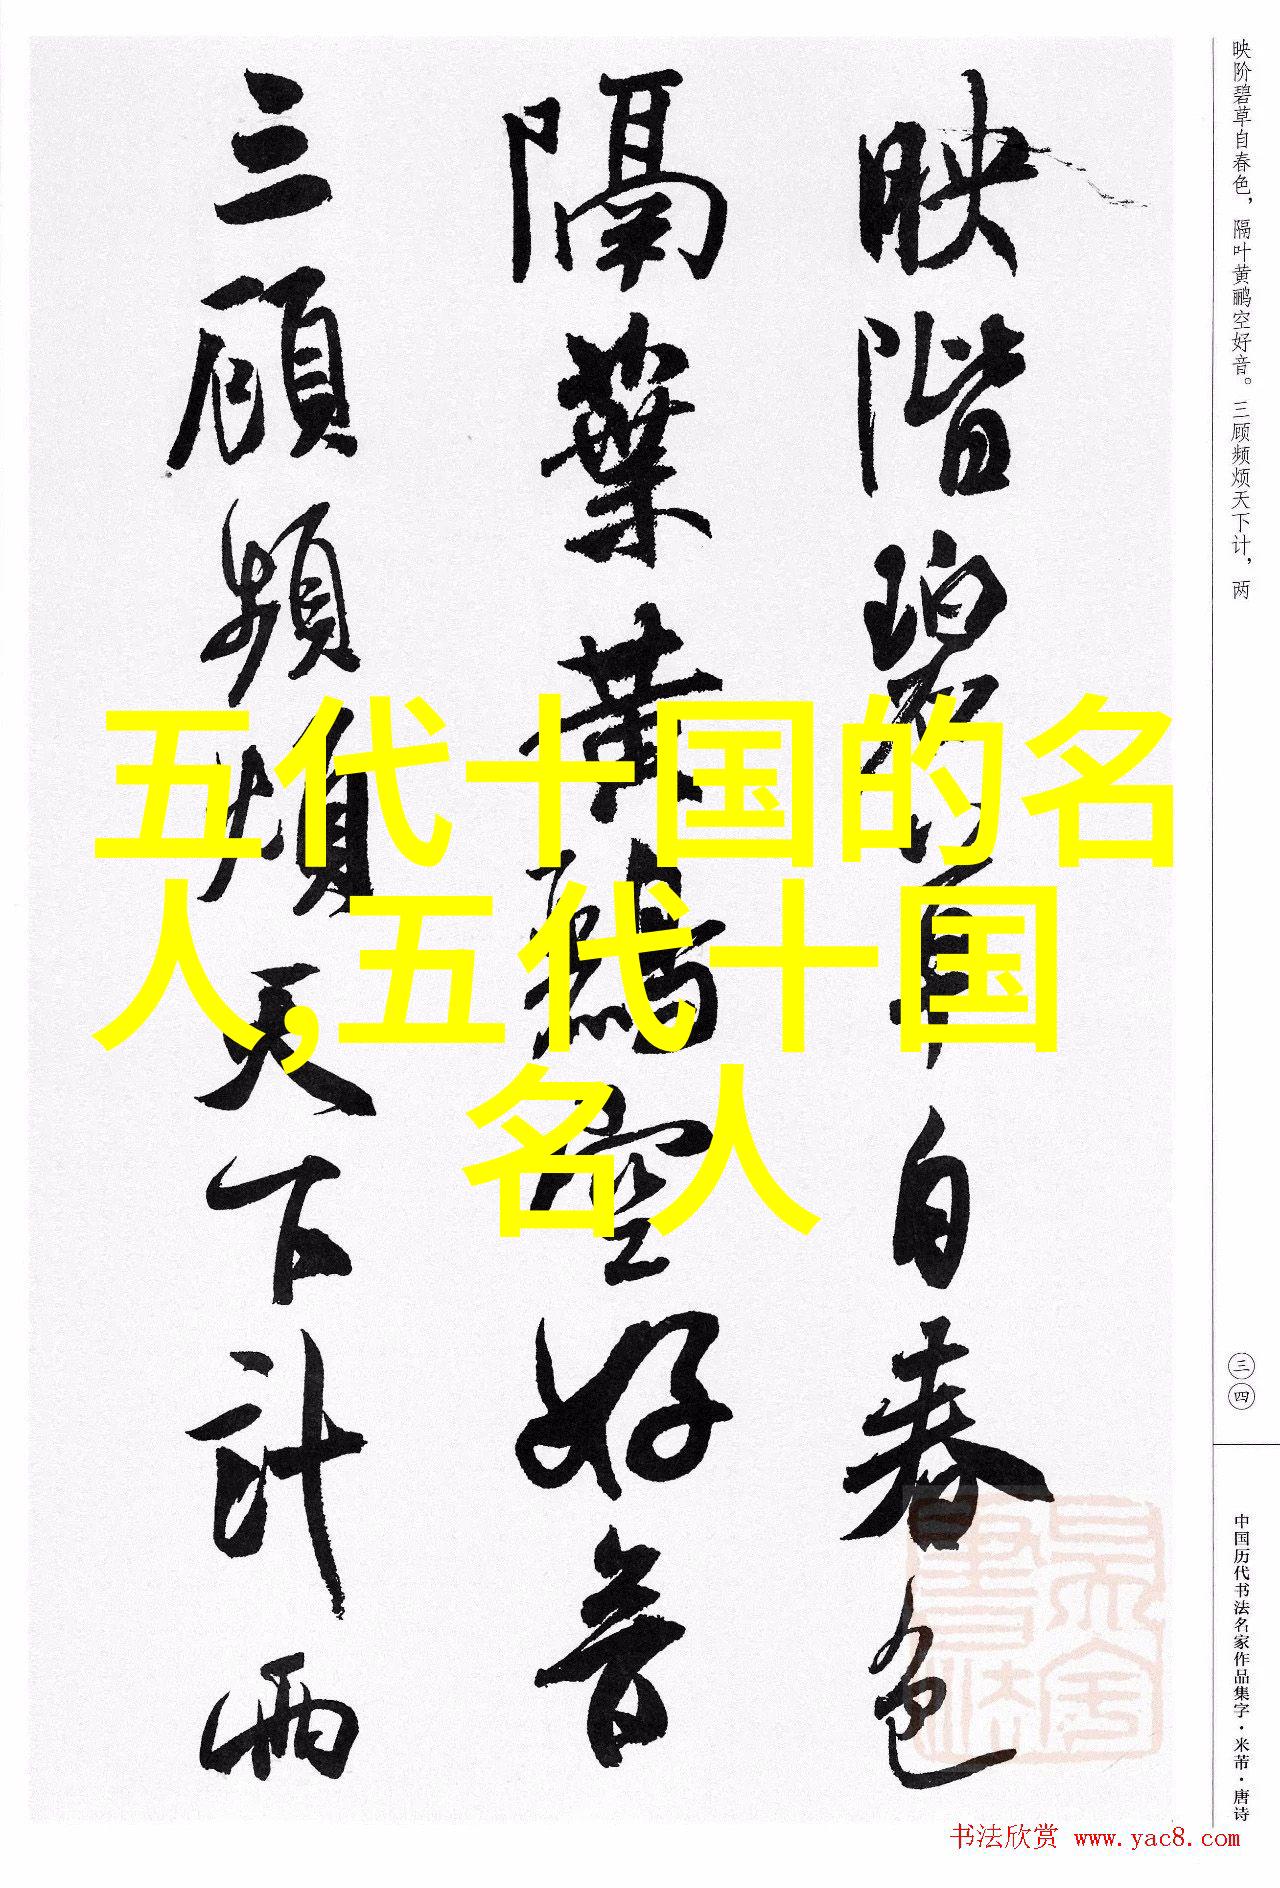 映階碧草自春色
隔葉黄鸝空好音
三顧頻煩天下計兩
五代十国的名
人,五代十国
名人
映阶碧草自春色，隔叶黄鹂空好音。三顾频烦天下计，两
三四
中国历代书法名家作品集字·米芾·唐诗
书法欣赏 www.yac8.com